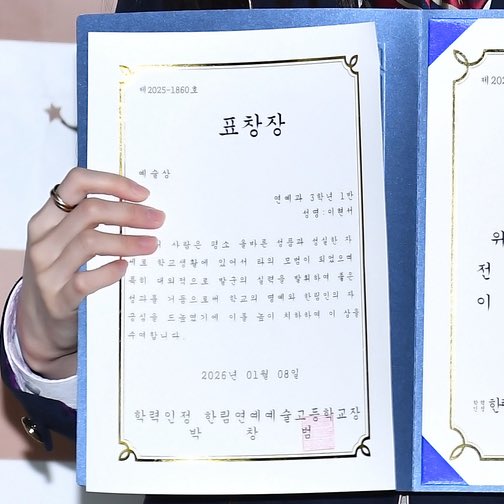 제2025-1860호
표창장
예술상
연예과 3학년 1반
성명:이현서
사람은 평소 올바른 성품과 성실한 자
세로 학교생활에 있어서 타의 모범이 되었으며
특히 대외적으로 발군의 실력을 발휘하여 좋은
성과를 거둠으로써 학교의 명예와 한림인의 자
긍심을 드높였기에 이를 높이 치하하며 이 상을
수여합니다.
2026년 01월 08일
학력인정 한림연예예술고등학교장
박 창 범
제202
위
전
이
학력
인정 한